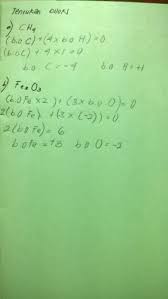 TENTUKAN BILOKS
a) CH4
(b.o C) + (4 x b.o H) = 0
(b.o C) + 4 x 1 = 0
b.o C = -4 b.o H = +1
b) Fe2O3
(b.o Fe x 2) + (3 x b.o O) = 0
2(b.o Fe) + (3 x (-2)) = 0
2(b.o Fe) = 6
b.o Fe = +3 b.o O = -2